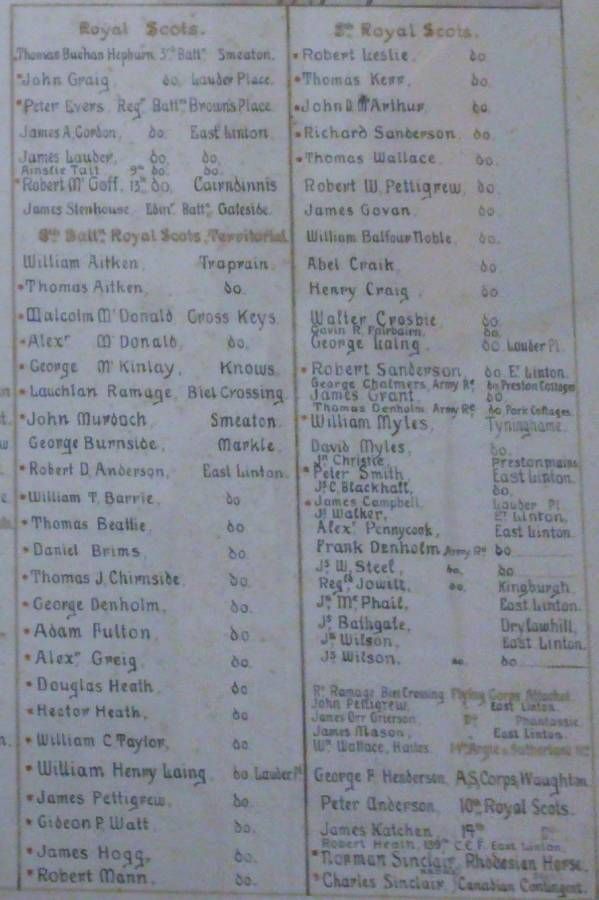 Royal Scots.
Thomas Buchan Hepburn, 3rd Battn. Smeaton.
John Graig, do. Lauder Place.
Peter Evers, Regr. Battn. Brown's Place.
James A, Gordon, do. East Linton.
James Lauder, do. do.
Ainslie Tait 9th do. do.
Robert Mc Goff, 13th do, Cairndinnis
James Stenhouse, Edinr. Battn. Gateside.
8th Battn. Royal Scots, Territorial.
William Aitken, Traprain.
Thomas Aitken, do.
Malcolm Mc Donald Cross Keys.
Alexr Mc Donald, do.
George Mc Kinlay, Knows.
Lauchlan Ramage, Biel Crossing.
John Murdoch, Smeaton.
George Burnside, Markle.
Robert D, Anderson, East Linton.
William T, Barrie, do
Thomas Beattie, do
Daniel Brims, do.
Thomas J, Chirnside, do.
George Denholm, do.
Adam Fulton, do
Alexr Greig, do.
Douglas Heath, do
Hector Heath, do.
William C, Taylor, do.
William Henry Laing, do. Lauder Pl.
James Pettigrew, do.
Gideon P, Watt, do.
James Hogg, do.
Robert Mann, do.
8th Royal Scots.
Robert Leslie, do.
Thomas Kerr, do.
John D. McArthur, do.
Richard Sanderson, do.
Thomas Wallace, do.
Robert W, Pettigrew, do.
James Govan do.
William Balfour Noble, do.
Abel Craik, do.
Henry Craig, do.
Walter Crosbie do.
Gavin R. Fairbairn, do.
George Laing, do Lauder Pl.
Robert Sanderson, do. Et. Linton.
George Chalmers, Army Re. do Preston Cottages
James Grant, do.
Thomas Denholm, Army Re. do Park Cottages.
William Myles, Tyninghame.
David Myles, do.
Jn. Christie, Prestonmains.
Peter Smith, East Linton.
Js. C, Blackhall, do.
James Campbell, Lauder Pl.
Js. Walker, Et. Linton.
Alexr Pennycook, East Linton.
Frank Denholm, Army Re. do
Js. W, Steel, do. do
Regld Jowitt, do. Kingburgh.
Jn. Mc Phail, East Linton.
Js. Bathgate, Drylawhill,
Jn. Wilson, East Linton.
Js. Wilson, do. do
Rt. Ramage Biel Crossing Flying Corps Attached.
John Pettigrew, East Linton.
James Orr Grierson, Do. Phantassie.
James Mason, East Linton.
Wm. Wallace, Hailes Argle & Sutherland
George F Henderson, A,S,Corps, Waughton.
Peter Anderson, 10th Royal Scots.
James Katchen, 14th Do.
Robert Heath, 139th C.E.F. East Linton.
Norman Sinclair, Rhodesian Horse.
Charles Sinclair, Canadian Contingent.